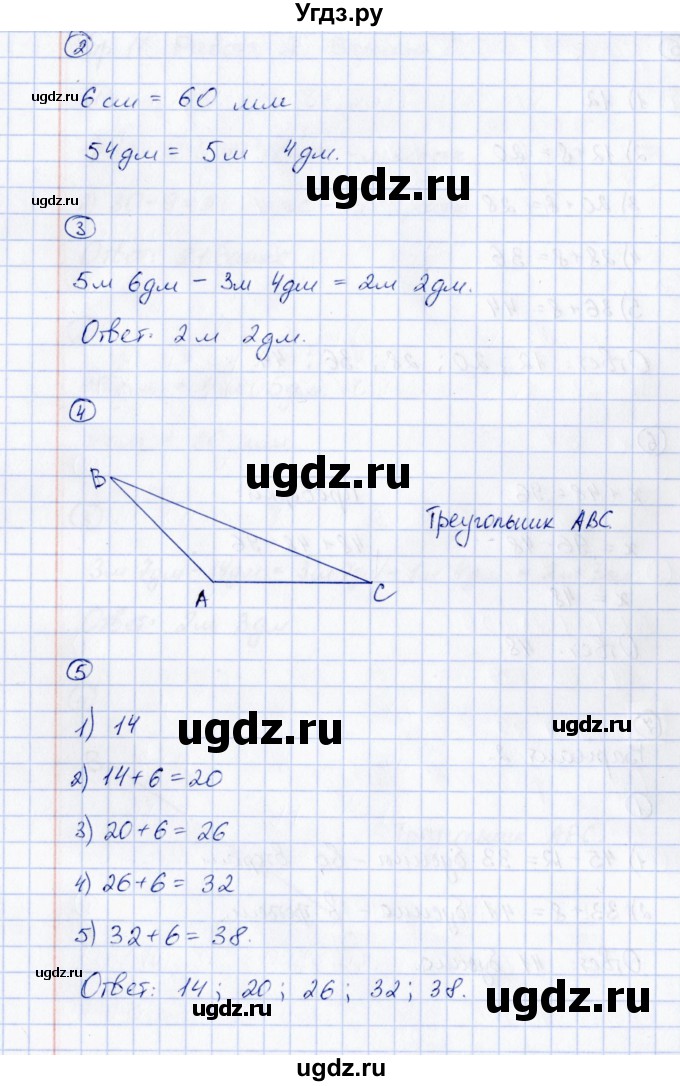 Угдз.ру
②
ugdz.ru
6 см = 60 мм
54дм = 5м 4дм.
ugdz.ru
ugdz.ru
③
5м 6дм – 3м 4дм = 2м 2дм.
Ответ: 2м 2дм.
④
ugdz.ru
B
Треугольник ABC.
A
C
⑤
1) 14
ugdz.ru
ugdz.ru
2) 14+6=20
3) 20+6=26
4) 26+6=32
5) 32+6=38.
ugdz.ru
Ответ: 14; 20; 26; 32; 38.
ugdz.ru
ugdz.ru
ugdz.ru